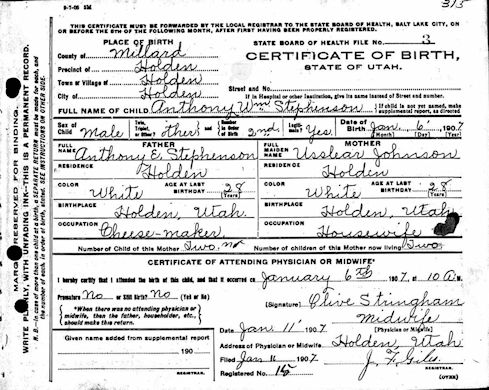 9-7-06 5M
315
THIS CERTIFICATE MUST BE FORWARDED BY THE LOCAL REGISTRAR TO THE STATE BOARD OF HEALTH, SALT LAKE CITY, ON
OR BEFORE THE 5TH OF THE FOLLOWING MONTH, AFTER FIRST HAVING BEEN PROPERLY REGISTERED.
PLACE OF BIRTH
STATE BOARD OF HEALTH FILE NO. 3
County of Millard
CERTIFICATE OF BIRTH,
Precinct of Holden
STATE OF UTAH.
Town or Village of Holden
Street and No.
City of Holden
If in Hospital or other institution, give its name instead of Street and number.
FULL NAME OF CHILD Anthony Wm Stephenson
If child is not yet named, make supplemental report, as directed
Sex of Child Male Twin, Triplet, or Other? Other and Number in Order of Birth 2nd Legitimate? Yes. Date of Birth Jan 6 1907
(Month) (Day) (Year)
FATHER
MOTHER
FULL NAME Anthony E. Stephenson
FULL MAIDEN NAME Usslear Johnson
RESIDENCE Holden
RESIDENCE Holden
COLOR White AGE AT LAST BIRTHDAY 28 (Years)
COLOR White AGE AT LAST BIRTHDAY 28 (Years)
BIRTHPLACE Holden, Utah.
BIRTHPLACE Holden, Utah
OCCUPATION Cheese-maker
OCCUPATION Housewife
Number of Child of this Mother Two.
Number of children of this Mother now living Two.
CERTIFICATE OF ATTENDING PHYSICIAN OR MIDWIFE
I hereby certify that I attended the birth of this child, and that it occurred on January 6th 1907, at 10 A.M.
Premature No or Still Birth? No (Yes or No)
(Signature) Clive Stringham
*When there was no attending physician or midwife, then the father, householder, etc., should make this return.
Midwife
(Physician or Midwife)
Date Jan 11 1907
Given name added from supplemental report
Address of Physician or Midwife Holden, Utah
190
Filed Jan 16 1907
J. F. Giles.
REGISTRAR.
Registered No. 15
REGISTRAR.
(OVER)
MARGIN RESERVED FOR BINDING.
WRITE PLAINLY, WITH UNFADING INK—THIS IS A PERMANENT RECORD.
N. B.—In case of more than one child at a birth, a SEPARATE RETURN must be made for each, and
the number of each, in order of birth, stated. SEE INSTRUCTIONS ON OTHER SIDE.